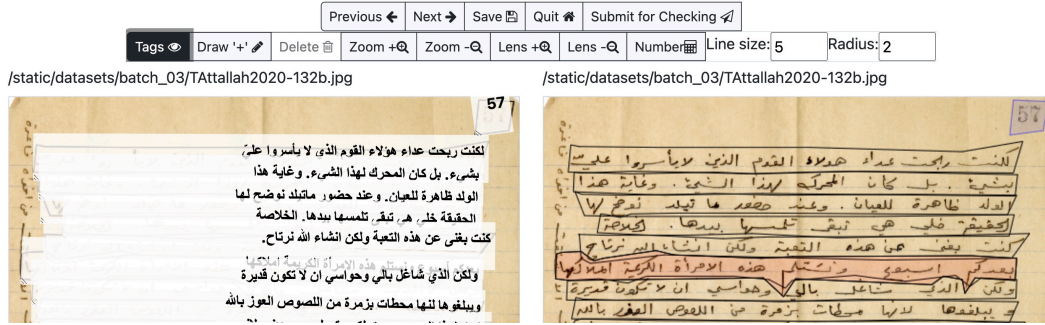 Previous Next Save Quit Submit for Checking
Tags Draw '+' Delete Zoom + Zoom - Lens + Lens - Number Line size: 5 Radius: 2
/static/datasets/batch_03/TAttallah2020-132b.jpg
57
لكنت ربحت عداء هؤلاء القوم الذي لا يأسروا عليّ
بشيء. بل كان المحرك لهذا الشيء. وغاية هذا
الولد ظاهرة للعيان. وعند حضور ماتيلد نوضح لها
الحقيقة خلي هي تبقى تلمسها بيدها. الخلاصة
كنت بغنى عن هذه التعبة ولكن انشاء الله نرتاح.
هذه الامرأة الكريمة املاكها
ولكن الذي شاغل بالي وحواسي ان لا تكون قديرة
ويبلغوها لنها محطات بزمرة من اللصوص العوز بالله
/static/datasets/batch_03/TAttallah2020-132b.jpg
57
لكنت ربحت عداء هولاء القوم الذين لا يأسروا عليّ
بشيء. بل كان المحرك لهذا الشيء. وغاية هذا
الولد ظاهرة للعيان. وعند حضور ماتيلد نوضح لها
الحقيقة خلي هي تبقى تلمسها بيدها. الخلاصة
كنت بغنى عن هذه التعبة ولكن انشاء الله نرتاح
بعدكم اسبوعي ونستلم هذه الامرأة الكريمة املاكها
ولكن الذي شاغل بالي وحواسي ان لا تكون قديرة
و يبلغوها لانها محطات بزمرة من اللصوص بالله